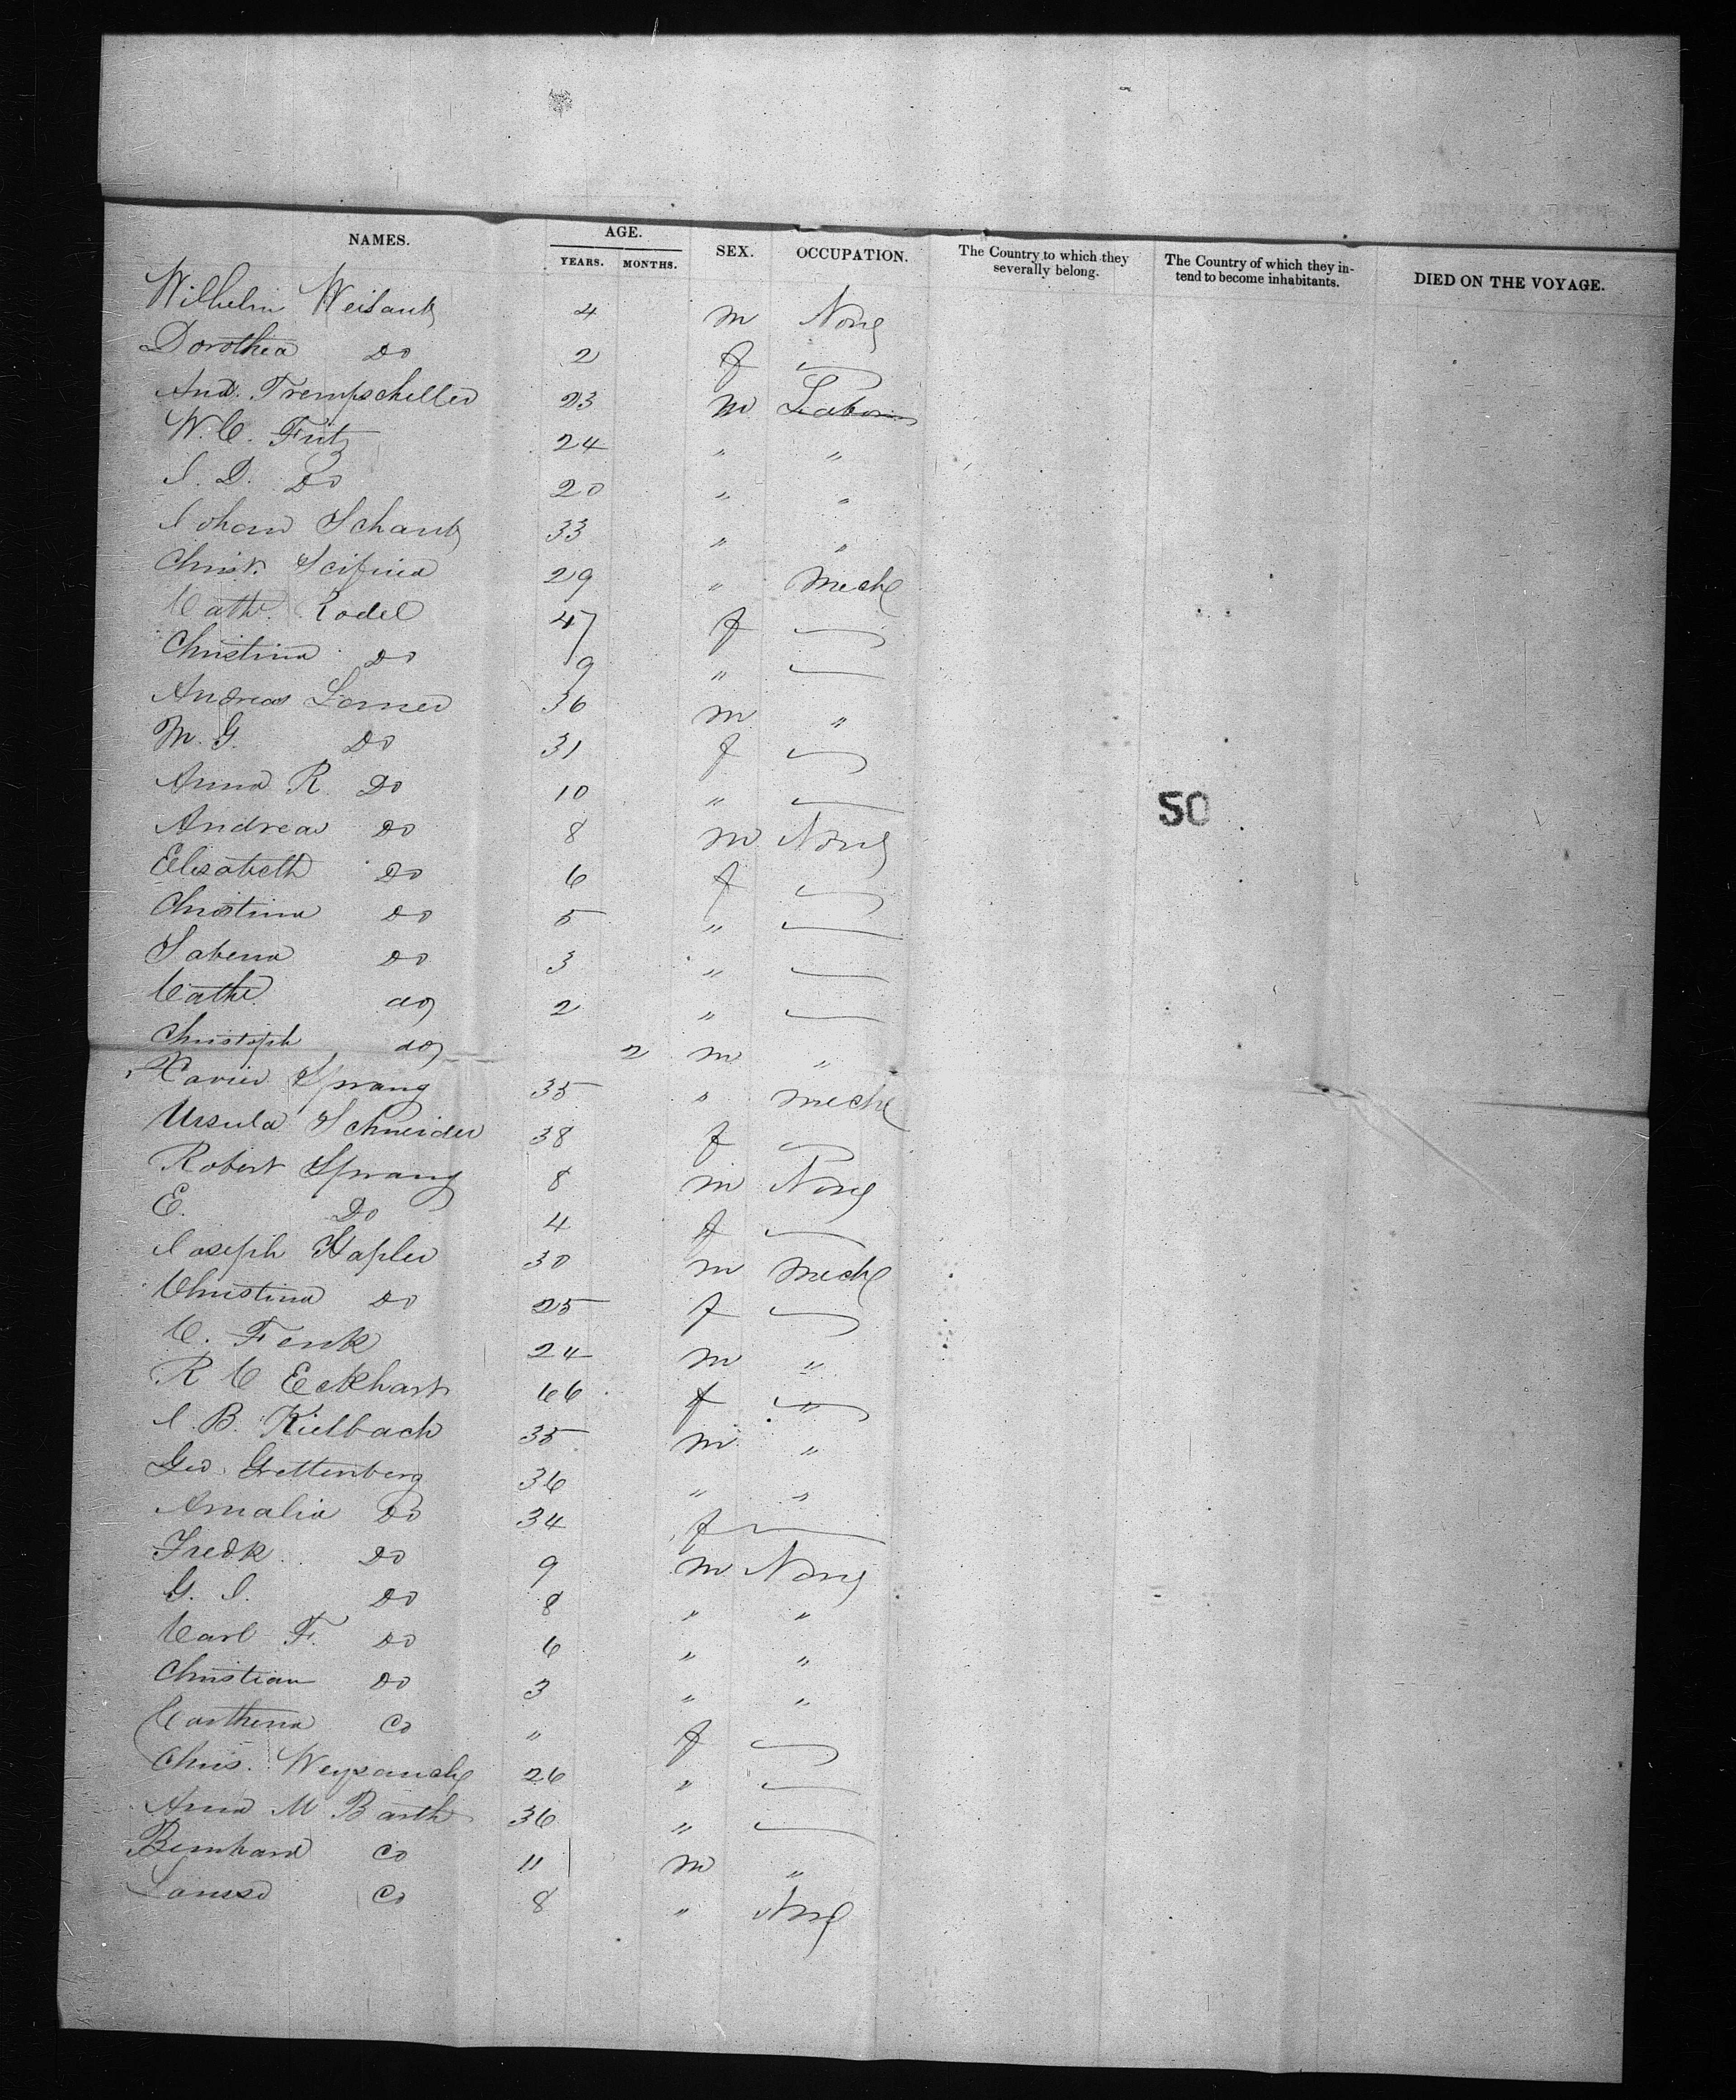 NAMES. AGE. YEARS. MONTHS. SEX. OCCUPATION. The Country to which they severally belong. The Country of which they intend to become inhabitants. DIED ON THE VOYAGE.
Wilhelm Weisautz 4 m None
Dorothea Do 2 f
And. Trempscheller 23 m Laborer
W. C. Fritz 24 " "
J. D. Do 20 " "
Johann Schantz 33 " "
Christ. 29 " Mech
Cath. Rodel 47 f
Christina Do 9 "
Andreas Lorner 36 m "
M. G. Do 31 f
Anna R. Do 10 "
Andreas Do 8 m None
Elisabeth Do 6 f
Christina Do 5 "
Sabena Do 3 "
Cathe. do 2 "
Christoph do 2 m "
Xavier Sprang 35 " Mech
Ursula Schneider 38 f
Robert Sprang 8 m None
E. Do 4 f
Joseph Hapler 30 m Mech
Christina Do 25 f
C. Fenk 24 m "
R C Eckhart 66 f "
J. B. Kielbach 35 m "
Geo. Grettenberg 36 " "
Amalia Do 34 f
Fredk. Do 9 m None
G. J. Do 8 " "
Carl F. Do 6 " "
Christian Do 3 " "
Carthena Co " f
Chris. 26 "
Anna M Barth 36 "
Bernhard Co 11 m "
Co 8 " None
50